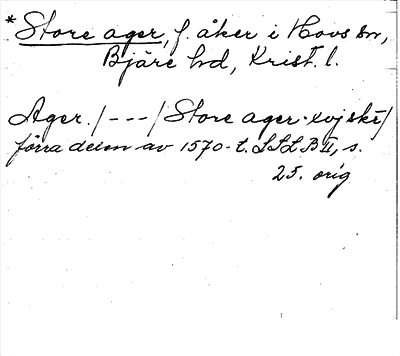 *Store ager, f. åker i Hovs sn,
Bjäre hd, Krist. l.
Ager. /---/ Store ager · xvj skr /
förra delen av 1570-t. LSLB II, s.
25. orig